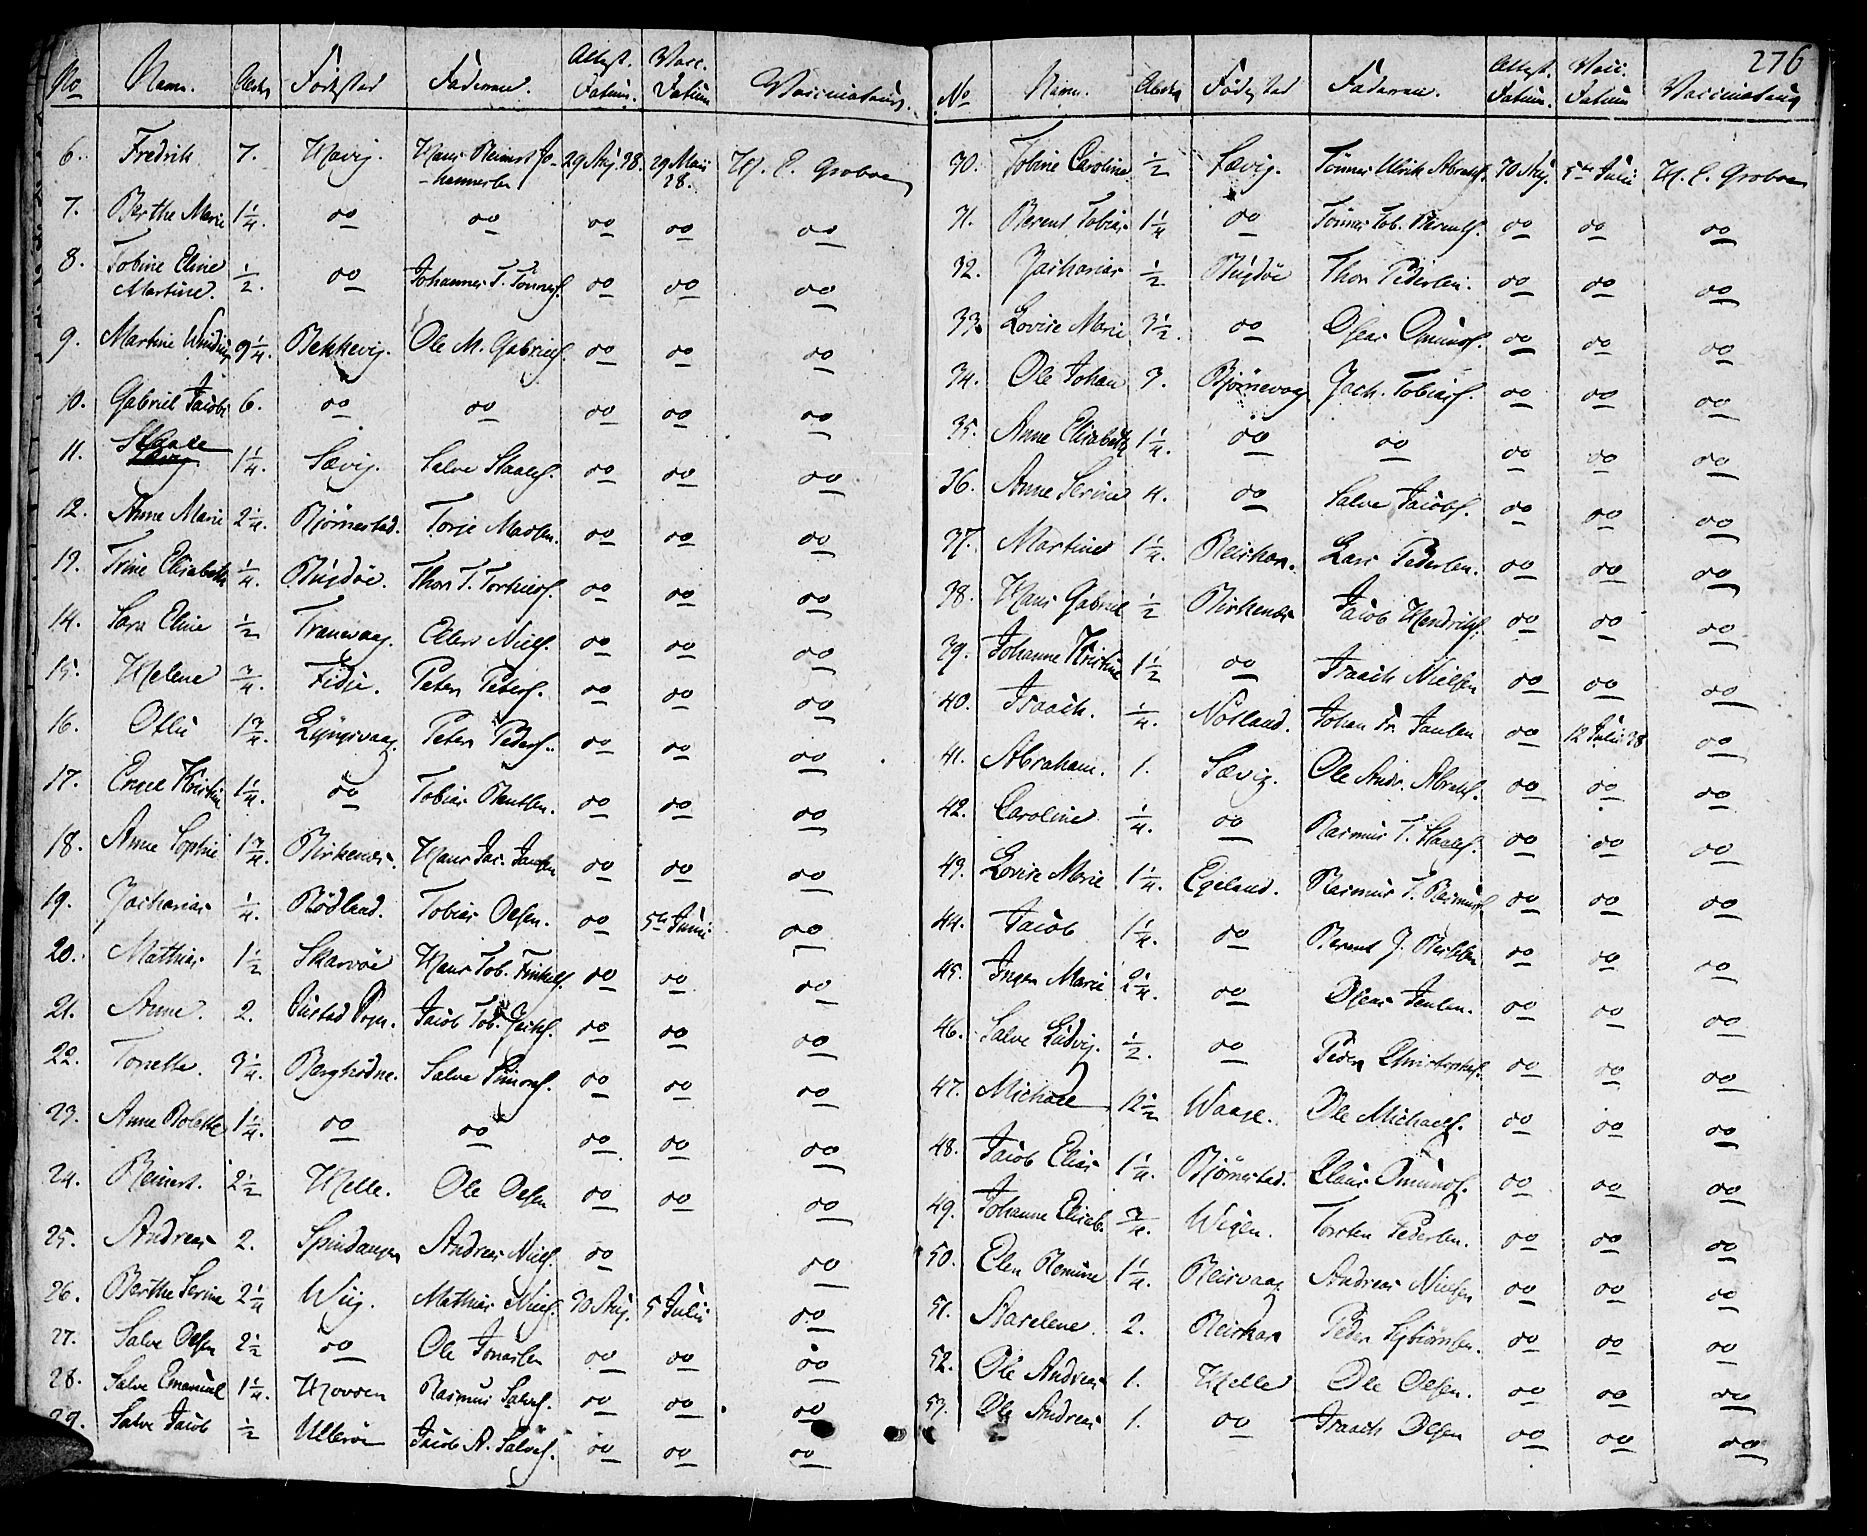 No Navn. Alder Fødested Faderen. Attest. Datum. Vacc. Datum Vaccinateur.
6. Fredrik 7. Havig. Hans Reinert Jo-hannesen 29 Aug. 38. 29 Maii 28. H. C. Groboe
7. Berthe Marie 1 1/4. do do do do do
8. Tobine Eline Martine. 1/2. do Johannes T. Tønnes. do do do
9. Martine 9 1/4. Bekkevig. Ole M. Gabriels. do do do
10. Gabriel Jacob 6. do do do do do
11. Staale 1 1/4. Sævig. Salve Staales. do do do
12. Anne Marie 2 1/4. Bjørnestad. Torje Madsen. do do do
13. Trine Elisabeth 1/4. Bugdøe. Thor T. do do do
14. Sara Eline 1/2 Tranevaag. Eilert Niels. do do do
15. Helene 3/4. Fidje. Peter Peters. do do do
16. Otlu 1 3/4. Lyngsvaag. Peter Peders. do do do
17. Engel Kristin 1 1/4. do Tobias Bentsen. do do do
18. Anne Sophie 1 3/4. Birkenes. Hans Jac. Jansen do do do
19. Zacharias 1/4. Rødland. Tobias Olsen. do 5te Juni do
20. Mathias 1 1/2 Skarvøe Hans Tob. do do do
21. Anne. 2. Jacob Tob. Zachs. do do do
22. Tonette. 3 1/4. Berghodne. Salve Simons. do do do
23. Anne Bolette 1 1/4. do do do do do
24. Reinert. 2 1/2 Helle. Ole Olsen do do do
25. Andreas 2. Spindangen Andreas Niels. do do
26. Berthe Serine 2 1/4 Wiig. Mathias Niels. 30 Aug. 5 Julii do
27. Salve Olsen 2 1/2 do Ole Jonassen do do do
28. Salve Emanuel 1 1/4. Hovden Rasmus Salves. do do do
29. Salve Jacob 1/2 Ullerøe Jacob A. Salves. do do do
276
No Navn. Alder Fødested Faderen. Attest. Datum. Vacc. Datum Vaccinateur
30. Tobine Caroline 1/2 Sævig. Tønnes Ulrik Abrahs. 30 Aug. 5te Julii H. C. Groboe
31. Berent Tobias 1 1/4 do Tønnes Tob. Berents. do do do
32. Zacharias 1/2 Bugdøe Thor Pedersen. do do do
33. Lovise Marie 3 1/2. do Osmunds. do do do
34. Ole Johan 3. Bjørnevog Zach. Tobias. do do do
35. Anne Elisabeth 1 1/4. do do do do do
36. Anne Serine 4. do Salve Jacobs. do do do
37. Martine 1 1/4. Lars Pedersen. do do do
38. Hans Gabriel 1/2 Birkenes Jacob Hendriks. do do do
39. Johanne Kristine 1 1/2 do Isaach Nielsen do do do
40. Isaach. 1/4. Nosland. Johan Fr. Jansen do 12 Julii 38 do
41. Abraham. 1. Sævig. Ole Andr. Abrahs. do do do
42. Caroline 1/4. do Rasmus T. Staales. do do do
43. Lovise Marie 1 1/4. Egeland. Rasmus T. Rasmus do do do
44. Jacob 1 1/4. do Berent J. do do do
45. Inger Marie 2 1/4. do Jensen. do do do
46. Salve Ludvig. 1/2. do Peder Christophs. do do do
47. Michael 12 1/2 Waage. Ole Michaels. do do do
48. Jacob Elias 1 1/4. Bjørnestad. Claus Omunds. do do do
49. Johanne Elisab. 3/4. Wigen. Torsten Pedersen. do do do
50. Elen Romine 1 1/4. Reisvaag Andreas Nielsen do do do
51. Aaselene. 2. Peder do do do
52. Ole Andreas 1. Helle Ole Olsen. do do do
53. Ole Andreas 1. do Isaach Olsen do do do